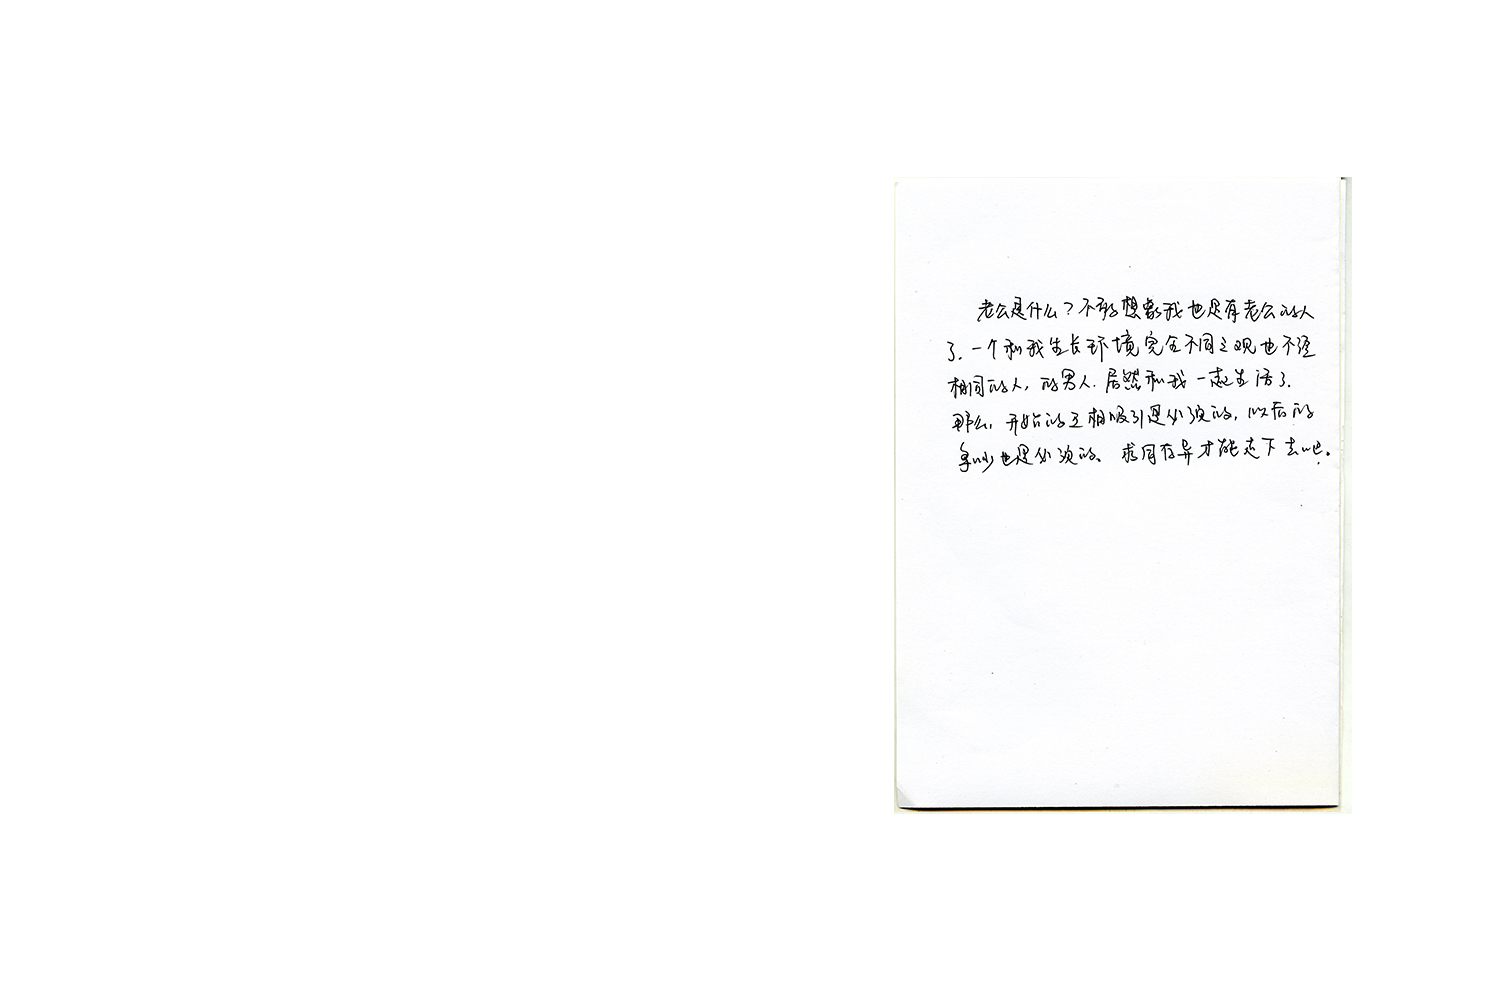 老公是什么？不敢想象我也是有老公的人
了.一个和我生长环境完全不同三观也不
相同的人,的男人.居然和我一起生活了.
那么,开始的互相吸引是必须的,以后的
争吵也是必须的、求同存异才能走下去吧。